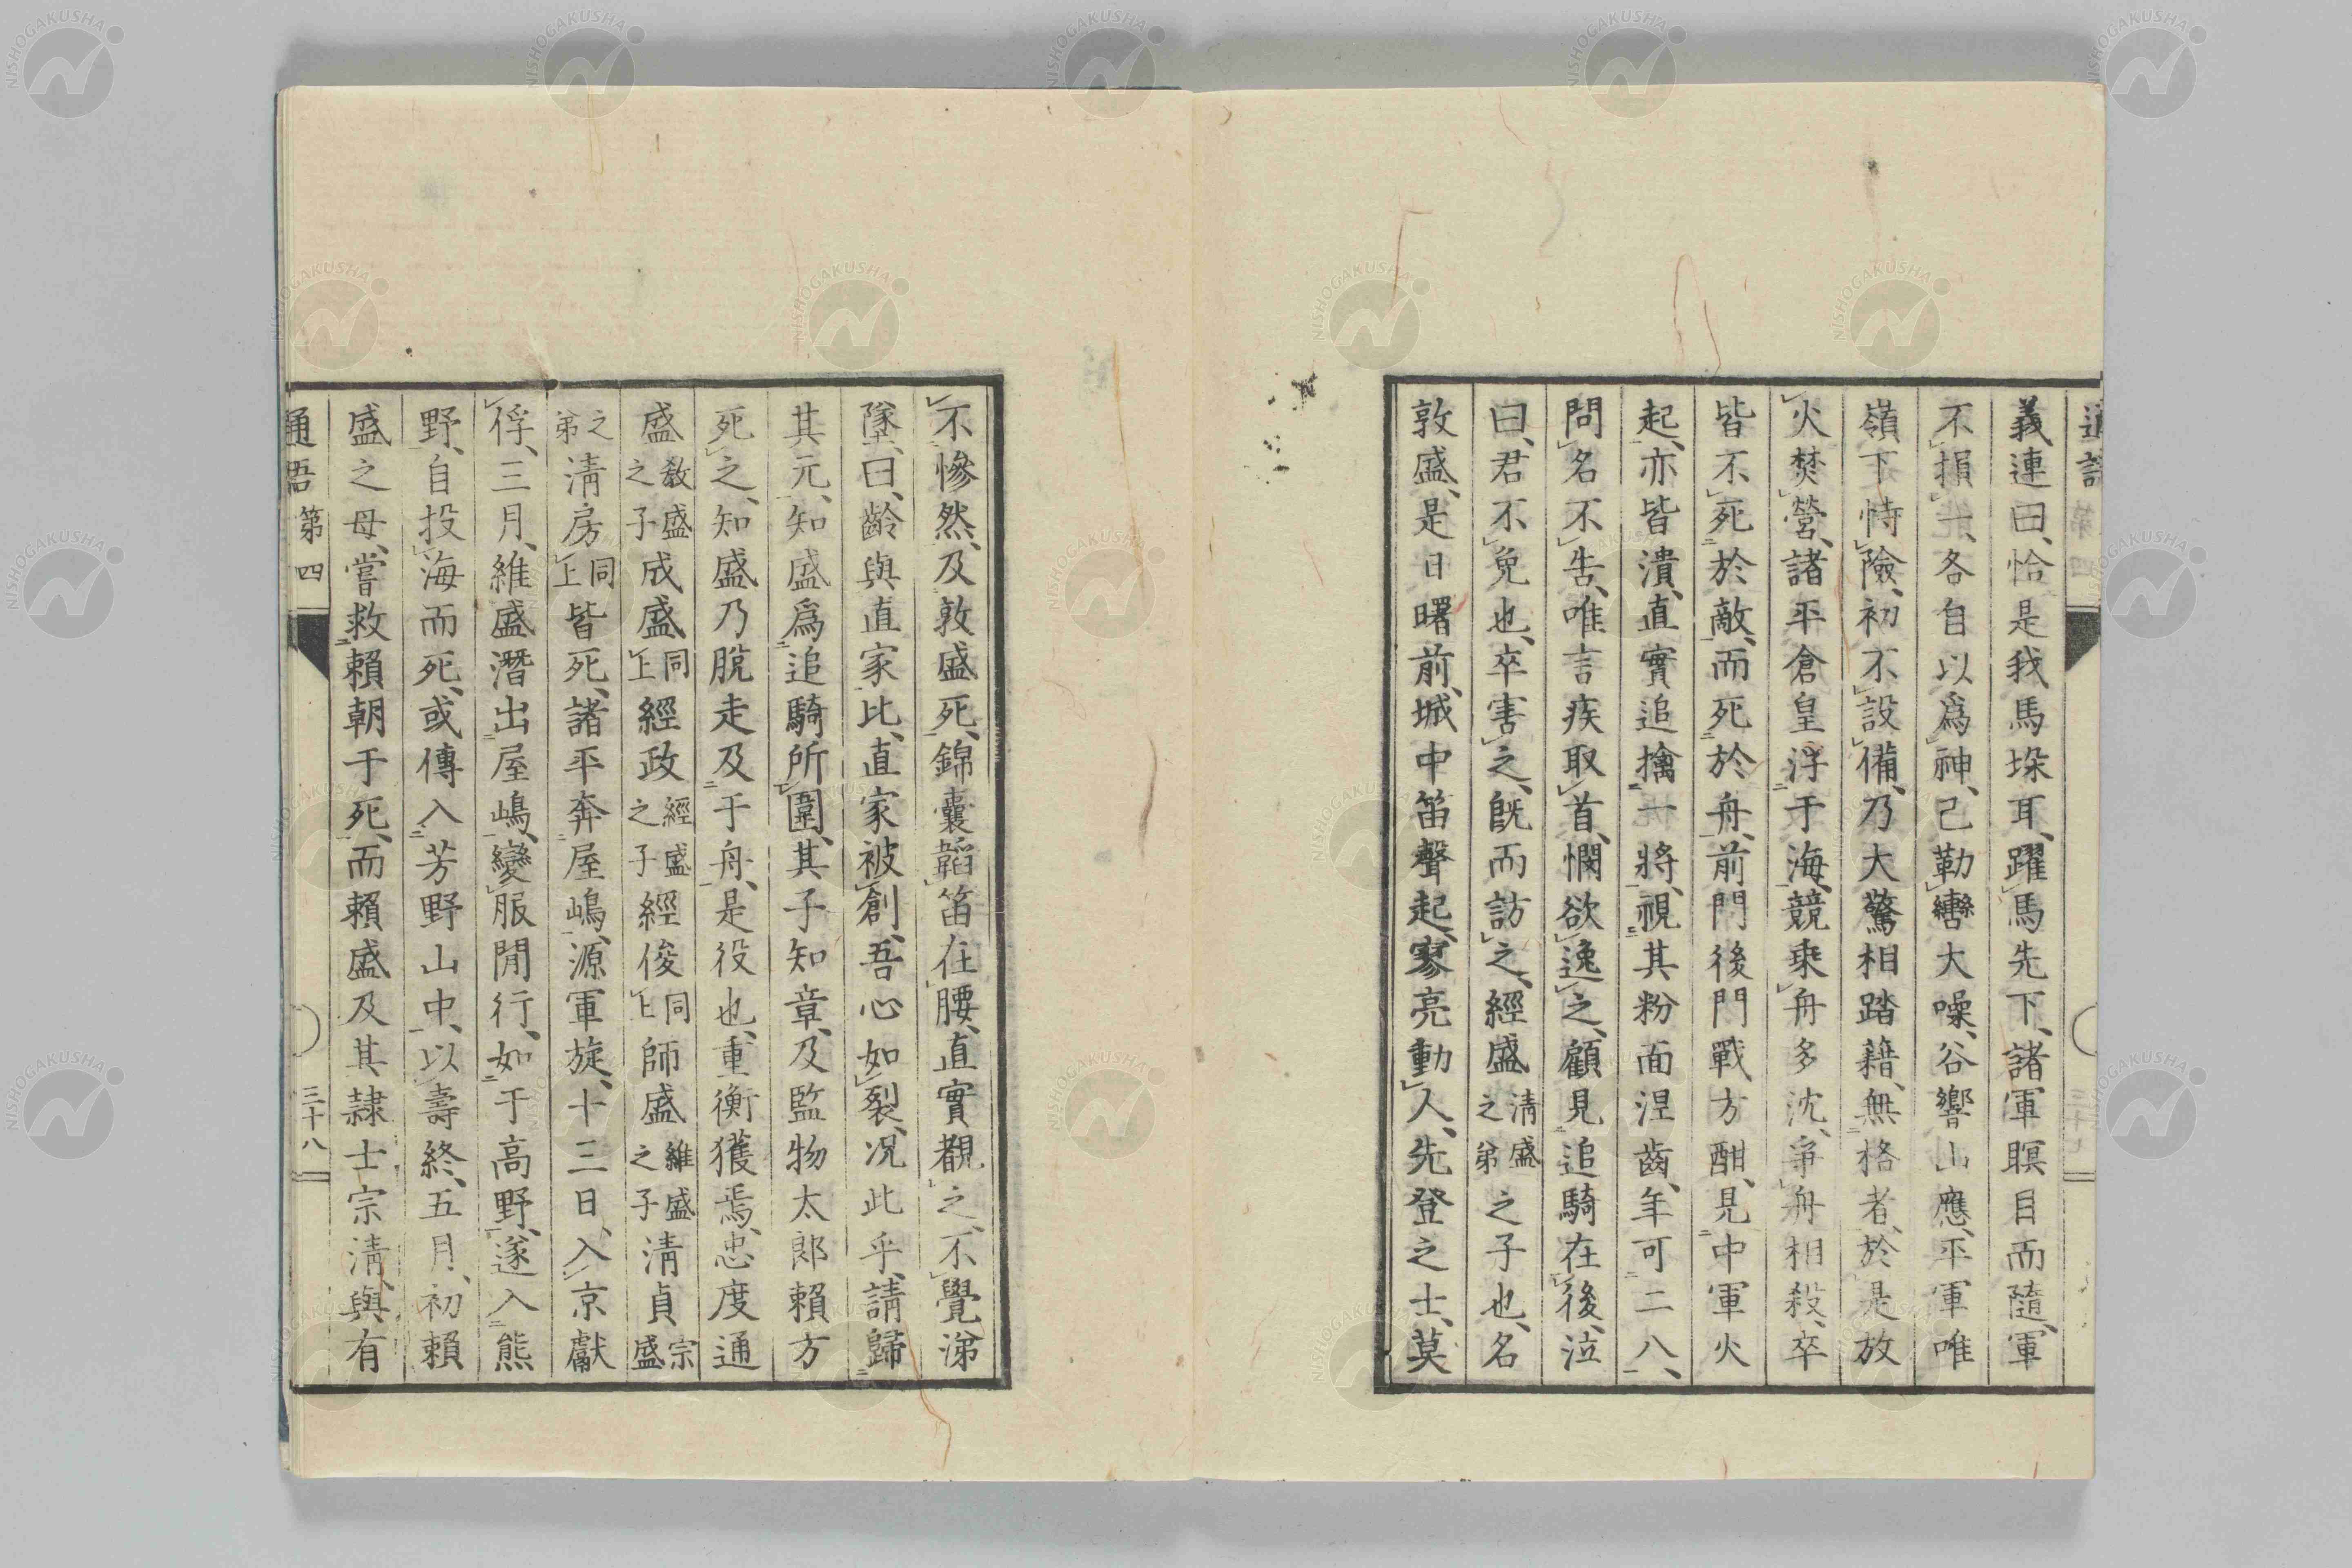 通語 第四 三十七
義連曰、恰是我馬埒耳、躍馬先下、諸軍瞑目而隨、軍
不損一、各自以爲神、己勒轡大噪、谷響山應、平軍唯
嶺下恃險、初不設備、乃大驚相踏藉、無格者、於是放
火焚營、諸平倉皇浮于海、競乘舟多沈、爭舟相殺、卒
皆不死於敵、而死於舟、前門後門戰方酣、見中軍火
起、亦皆潰、直實追擒一將、視其粉面涅齒、年可二八、
問名不告、唯言疾取首、憫欲逸之、顧見追騎在後、泣
曰、君不免也、卒害之、既而訪之、經盛清盛之弟之子也、名
敦盛、是日曙前、城中笛聲起、寥亮動人、先登之士、莫
不慘然、及敦盛死、錦囊韜笛在腰、直實觀之、不覺涕
墜、曰、齡與直家比、直家被創、吾心如裂、况此乎、請歸
其元、知盛爲追騎所圍、其子知章、及監物太郎賴方
死之、知盛乃脫走及于舟、是役也、重衡獲焉、忠度通
盛教盛之子成盛同上經政經盛之子經俊同上師盛維盛之子清貞宗盛
之弟清房同上皆死、諸平奔屋嶋、源軍旋、十三日、入京獻
俘、三月、維盛潛出屋嶋、變服閒行、如于高野、遂入熊
野、自投海而死、或傳入芳野山中、以壽終、五月、初賴
盛之母、嘗救賴朝于死、而賴盛及其隷士宗淸、與有
通語 第四 三十八
NISHOGAKUSHA